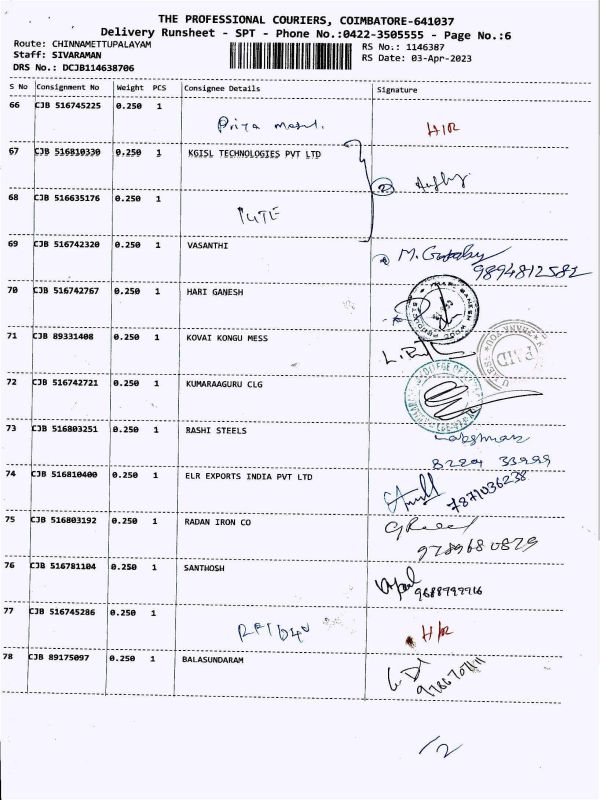 THE PROFESSIONAL COURIERS, COIMBATORE-641037
Delivery Runsheet - SPT - Phone No.:0422-3505555 - Page No.:6
Route: CHINNAMETTUPALAYAM RS No.: 1146387
Staff: SIVARAMAN RS Date: 03-Apr-2023
DRS No.: DCJB114638706
S No Consignment No Weight PCS Consignee Details Signature
66 CJB 516745225 0.250 1 Priya H/R
67 CJB 516810330 0.250 1 KGISL TECHNOLOGIES PVT LTD
68 CJB 516635176 0.250 1
69 CJB 516742320 0.250 1 VASANTHI M. 9894812582
70 CJB 516742767 0.250 1 HARI GANESH
71 CJB 89331408 0.250 1 KOVAI KONGU MESS
PAID
72 CJB 516742721 0.250 1 KUMARAAGURU CLG
73 CJB 516803251 0.250 1 RASHI STEELS
74 CJB 516810400 0.250 1 ELR EXPORTS INDIA PVT LTD 7871036238
75 CJB 516803192 0.250 1 RADAN IRON CO
9789680829
76 CJB 516781104 0.250 1 SANTHOSH
77 CJB 516745286 0.250 1 H/R
78 CJB 89175097 0.250 1 BALASUNDARAM